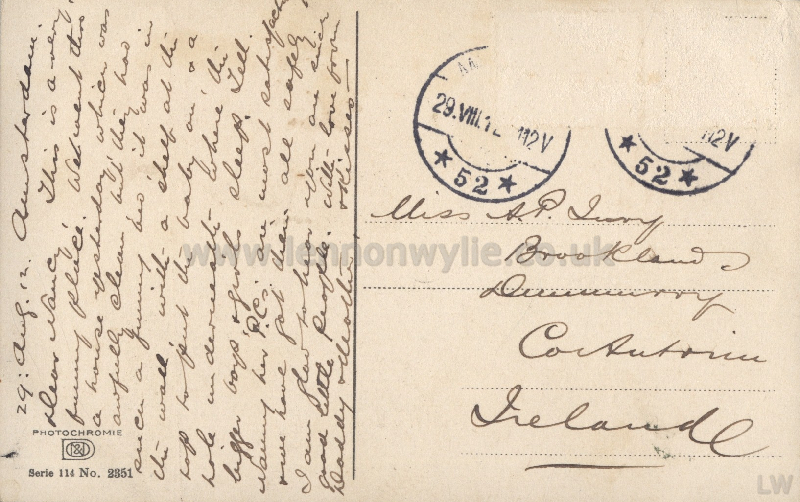 29: Aug. 12. Amsterdam.
Dear Nancy, This is a very
funny place. We went thro
a house yesterday which was
awfully clean but they had
such a funny bed it was in
the wall with a shelf at the
top to put the baby on & a
hole underneath where the
bigger boys & girls sleep. Tell
Nanny her P.C.s are most satisfactory
we have got them all safely
I am glad to hear you are such
good little people. With love from
Daddy & Mother & Kisses
PHOTOCHROMIE
Serie 114 No. 2351
29.VIII.12 112V
52
12V
52
Miss A.P.
Brooklands
Dunmurry
Co Antrim
Ireland
www.lennonwylie.co.uk
LW